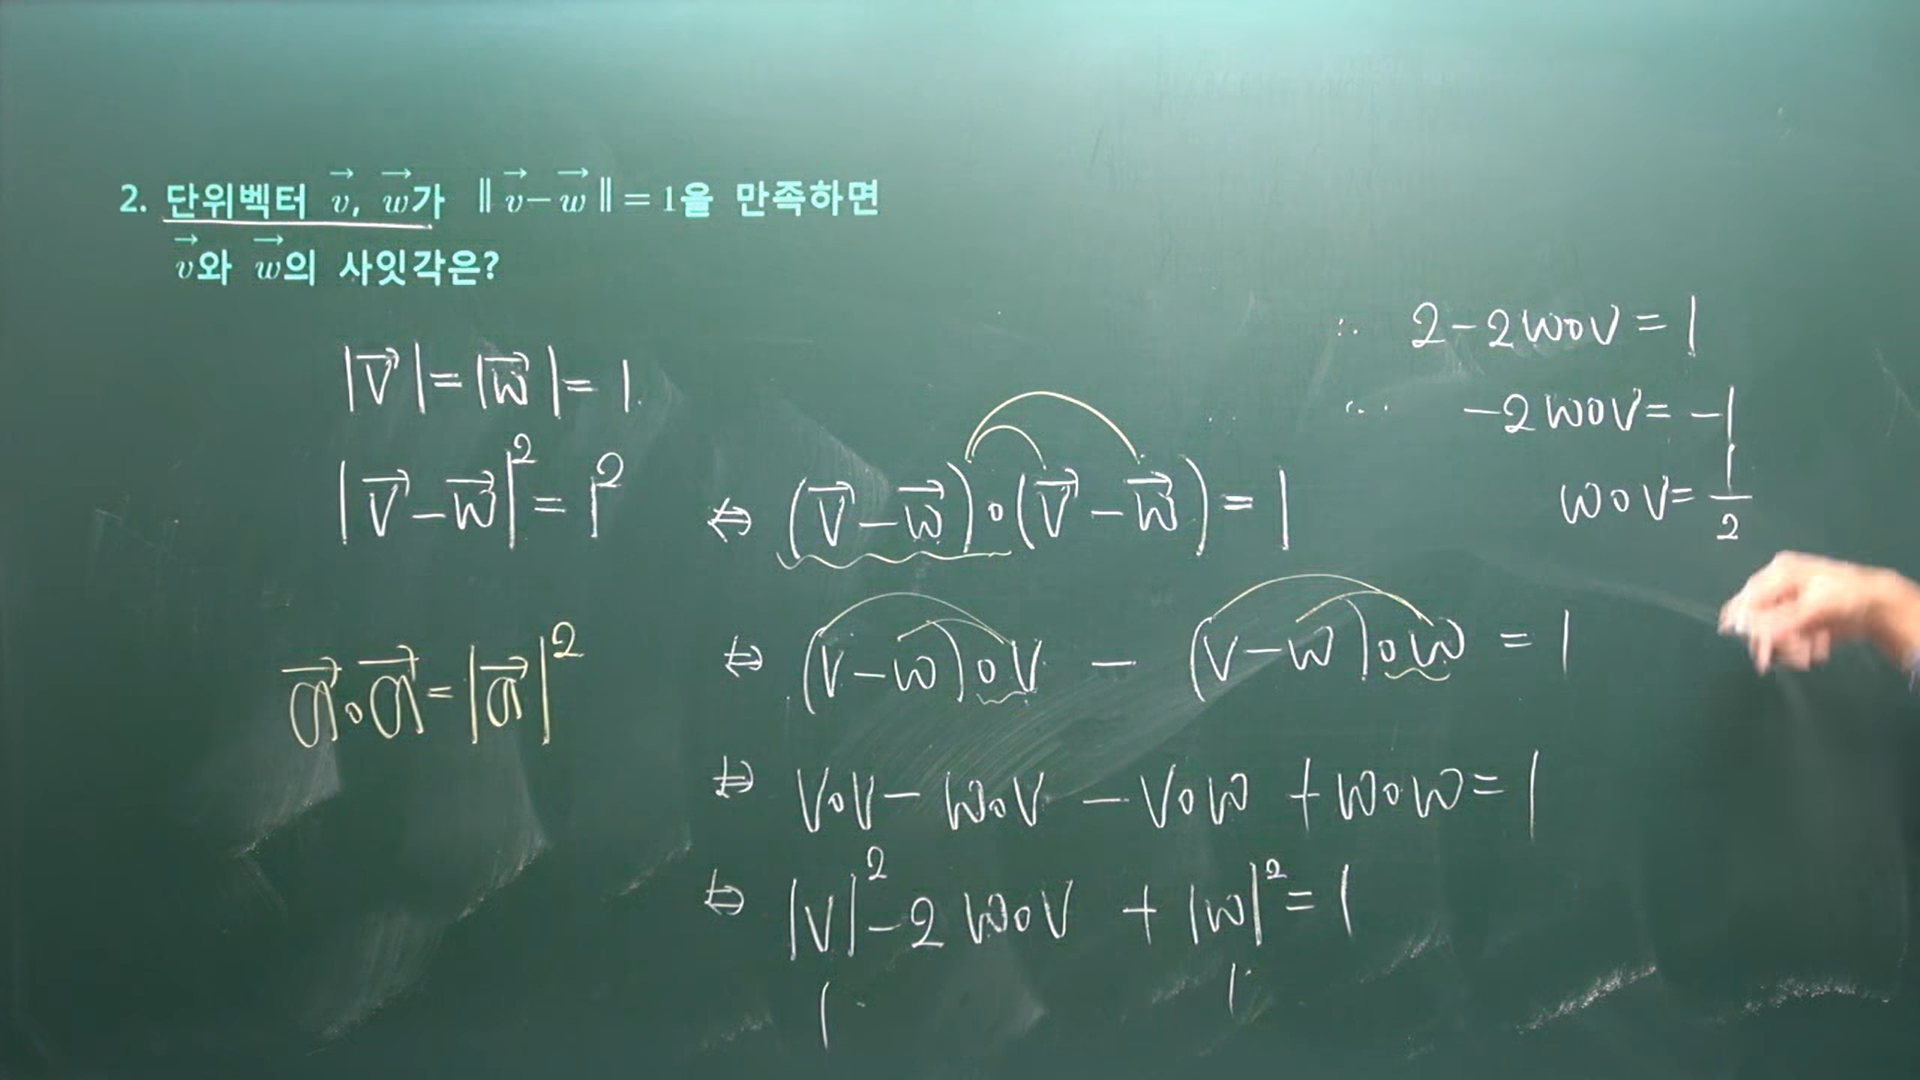 2. 단위벡터 v⃗, w⃗가 ‖v⃗−w⃗‖=1을 만족하면
v⃗와 w⃗의 사잇각은?
|v⃗|=|w⃗|=1.
|v⃗−w⃗|²=1²
⇔ (v⃗−w⃗)∘(v⃗−w⃗)=1
a⃗∘a⃗=|a⃗|²
⇔ (v−w)∘v − (v−w)∘w = 1
⇔ v∘v − w∘v − v∘w + w∘w = 1
⇔ |v|²−2w∘v + |w|²=1
1 1
∴ 2−2w∘v=1
∴ −2w∘v=−1
w∘v=1/2